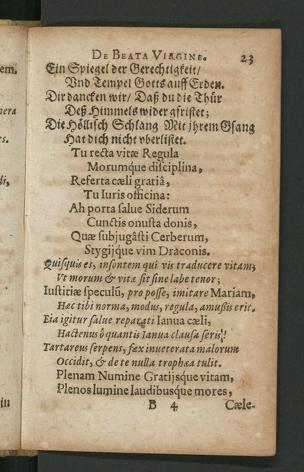 DE BEATA VIRGINE. 23
Ein Spiegel der Gerechtigkeit/
Vnd Tempel Gotts auff Erden.
Dir dancken wir/ Daß du die Thür
Deß Himmels wider gfristet;
Die Höllisch Schlang Mit jhrem Gsang
Hat dich nicht vberlistet.
Tu recta vitæ Regula
Morumq́ue disciplina,
Referta cæli gratiâ,
Tu Iuris officina:
Ah porta salue Siderum
Cunctis onusta donis,
Quæ subjugâsti Cerberum,
Stygijq́ue vim Draconis.
Quisquis es, insontem qui vis traducere vitam,
Vt morum & vitæ sit sine labe tenor;
Iustitiæ speculũ, pro posse, imitare Mariam,
Hæc tibi norma, modus, regula, amussis erit.
Eia igitur salue reparati Ianua cæli,
Hactenus ô quantis Ianua clausa seris!
Tartareus serpens, fæx inueterata malorum
Occidit, & de te nulla trophæa tulit.
Plenam Numine Gratijsque vitam,
Plenos lumine laudibusque mores,
B 4 Cæle-
em.
nera
rs.
di,
in